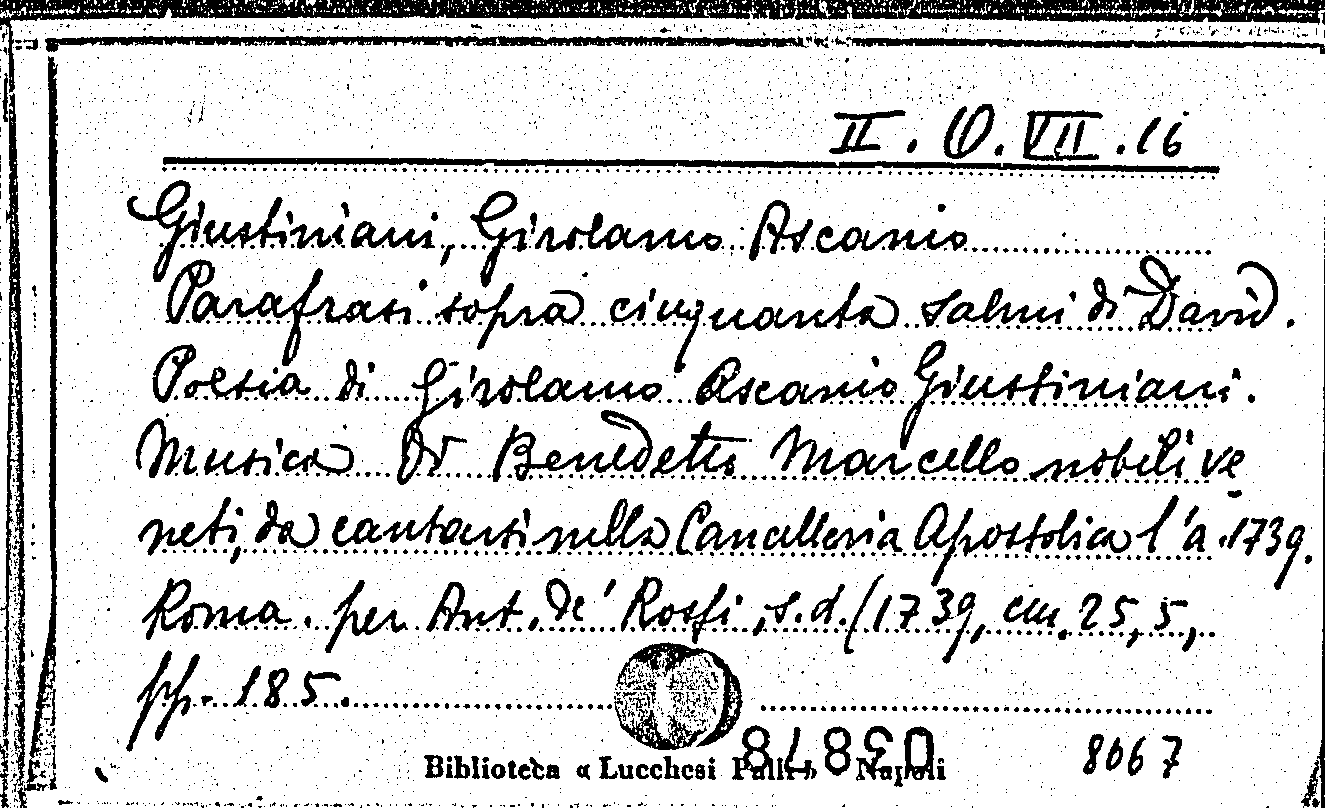 II. O. VII. 16
Giustiniani, Girolamo Ascanio
Parafrasi sopra cinquanta salmi di David.
Poesia di Girolamo Ascanio Giustiniani.
Musica di Benedetto Marcello nobili ve
neti, da cantarsi nella Cancelleria Apostolica l'a. 1739.
Roma. per Ant. de' Rossi, s.d. (1739, cm. 25,5,
pp. 185.
Biblioteca « Lucchesi Palli » Napoli
8067